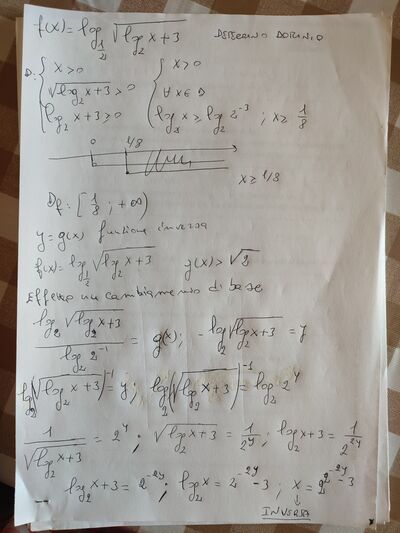 f(x) = log_{1/2} √(log_2 x + 3) DETERMINO DOMINIO
D: { x > 0 { x > 0
√(log_2 x + 3) > 0 ∀ x ∈ D
log_2 x + 3 ≥ 0 log_2 x ≥ log_2 2^{-3} ; x ≥ 1/8
0 1/8
x ≥ 1/8
D_f: [1/8 ; +∞)
y = g(x) funzione inversa
f(x) = log_{1/2} √(log_2 x + 3) g(x) > √2
Effettuo un cambiamento di base
log_2 √(log_2 x + 3) / log_2 2^{-1} = g(x) ; - log_2 √(log_2 x + 3) = y
log_2 (√(log_2 x + 3))^{-1} = y ; log_2 (√(log_2 x + 3))^{-1} = log_2 2^y
1 / √(log_2 x + 3) = 2^y ; √(log_2 x + 3) = 1/2^y ; log_2 x + 3 = 1/2^{2y}
log_2 x + 3 = 2^{-2y} ; log_2 x = 2^{-2y} - 3 ; x = 2^{2^{-2y} - 3}
↓
INVERSA